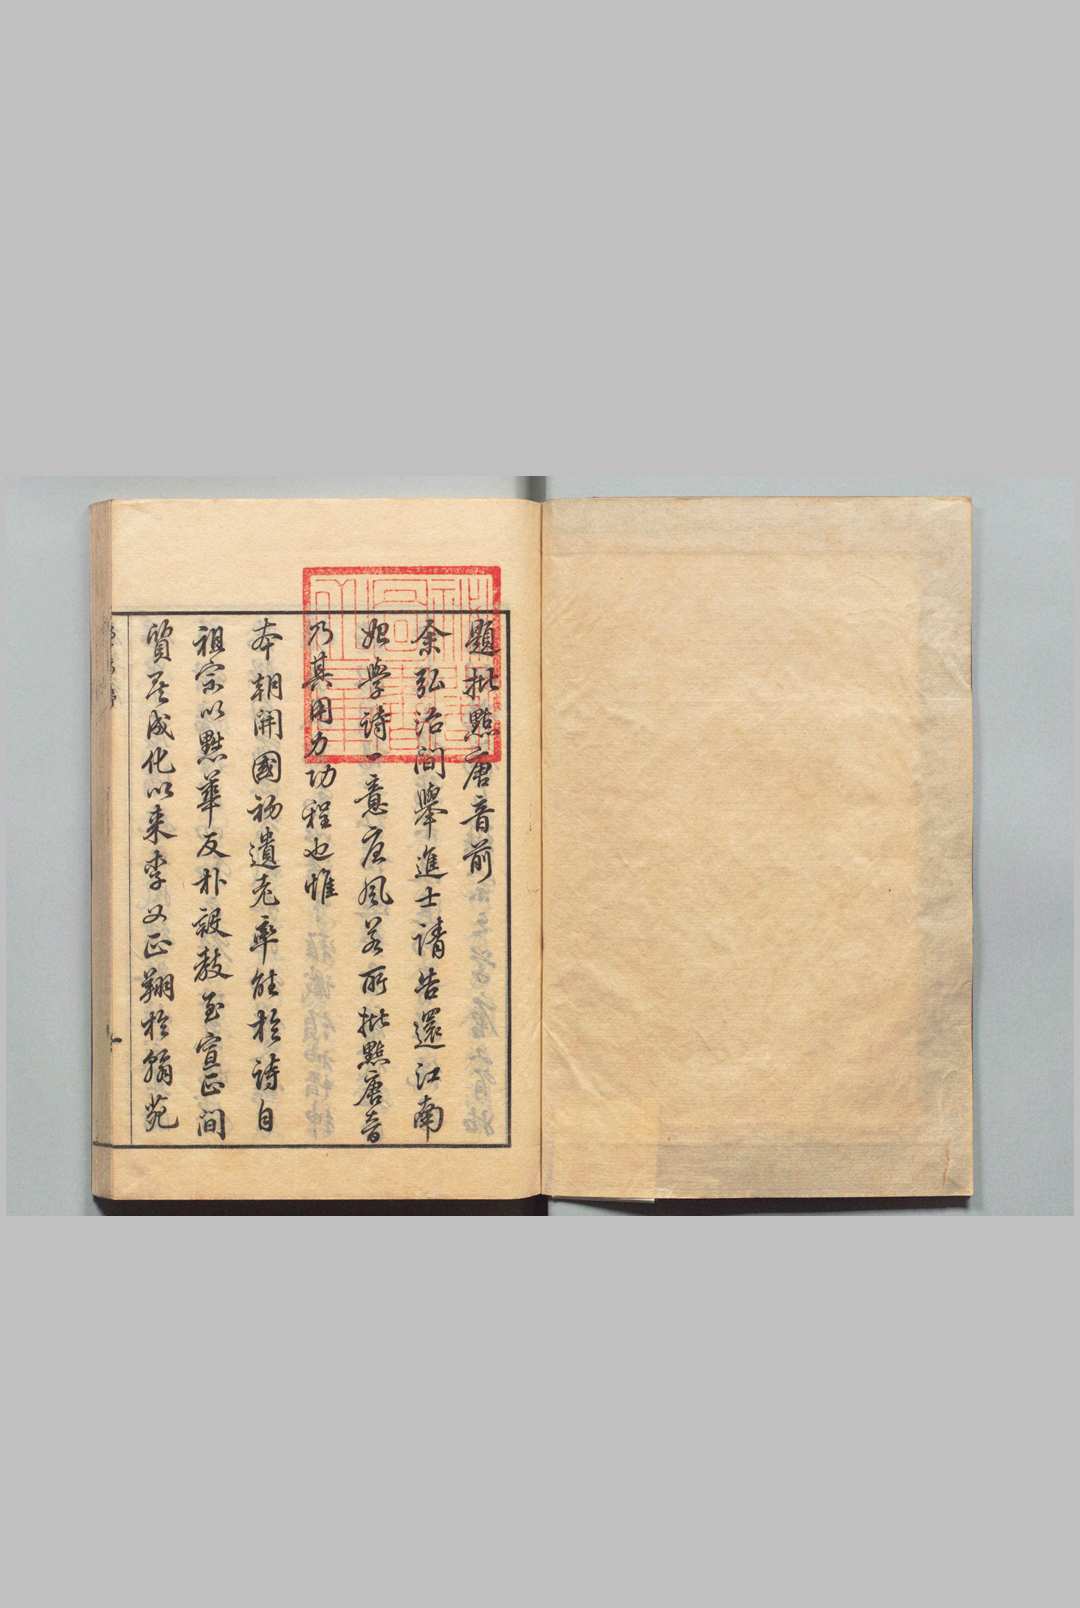 題批點唐音前
余弘治間舉進士請告還江南
始學詩一意唐風若所批點唐音
乃其用力功程也惟
本朝開國初遺老率能於詩自
祖宗以黜華反朴設教至宣正間
質矣成化以來李文正翔於翰苑